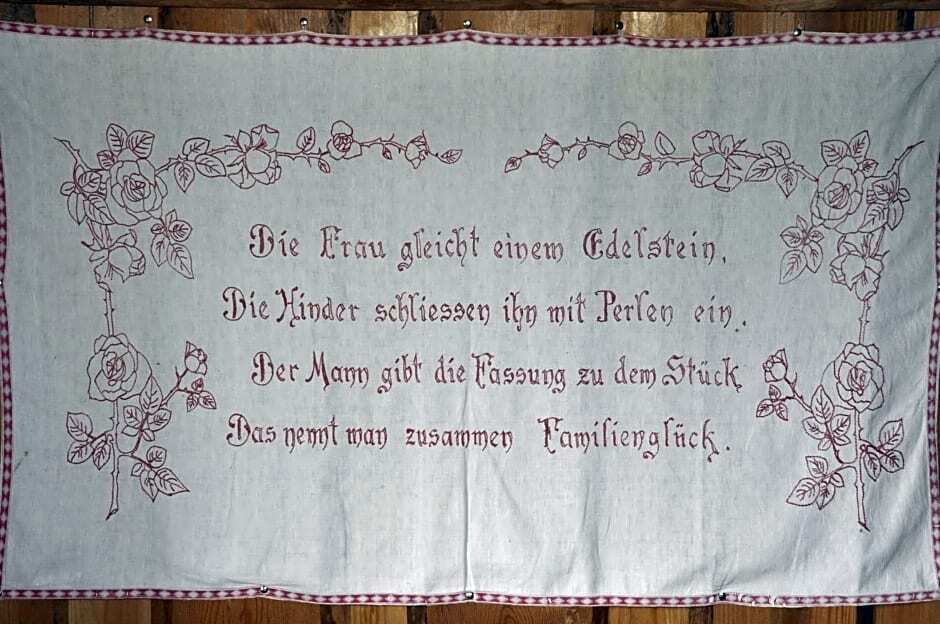 Die Frau gleicht einem Edelstein,
Die Kinder schliessen ihn mit Perlen ein.
Der Mann gibt die Fassung zu dem Stück
Das nennt man zusammen Familienglück.